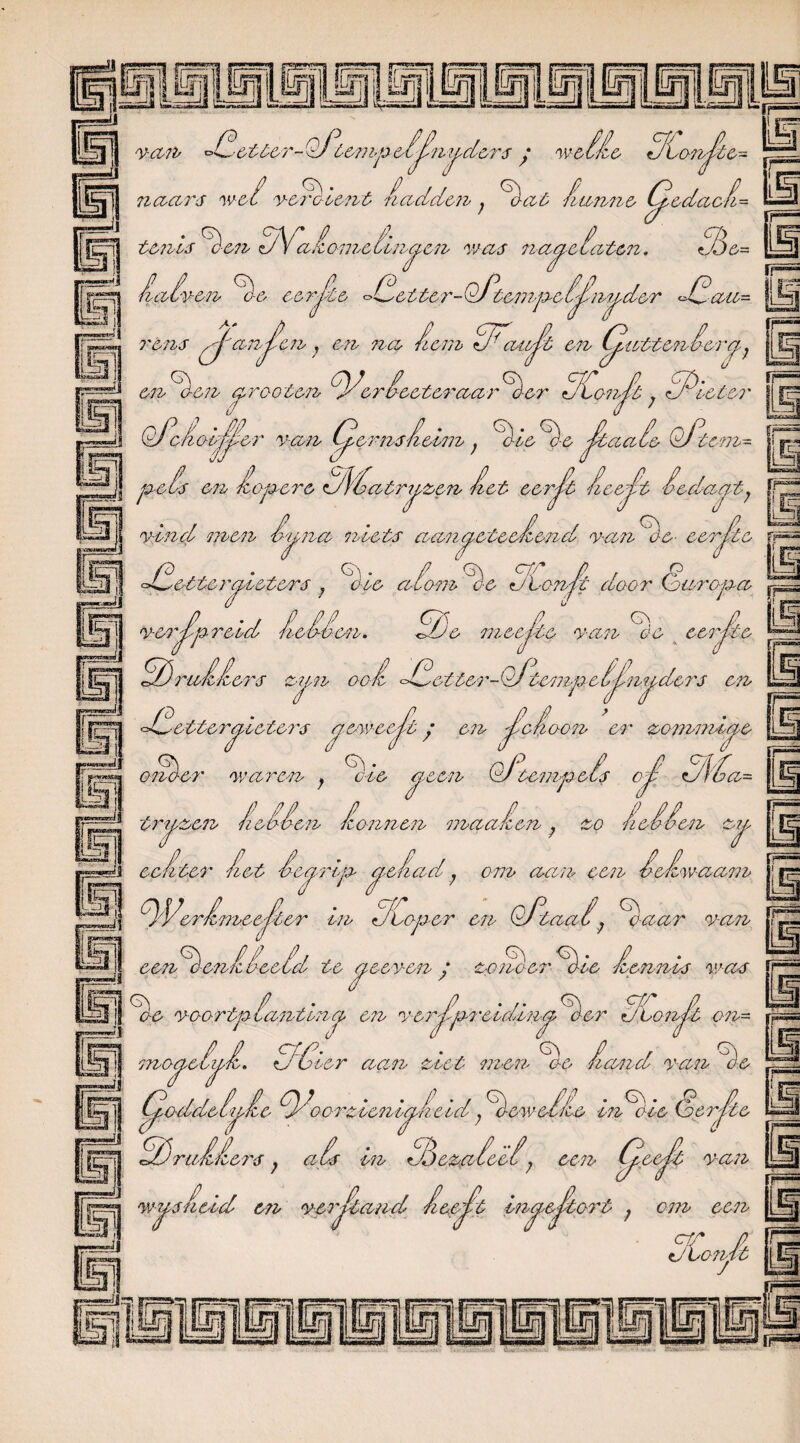 van Letter-Stempelſnyders ; welke Konſte=
naars wel verdient hadden, dat hunne Gedach=
tenis den Nakomelingen was nagelaten. Be=
halven de eerſte Letter-Stempelſnyder Lau=
rens Janſen, en na hem Fauſt en Guttenberg,
en den grooten Verbeeteraar der Konſt, Pieter
Schoiffer van Gernsheim, die de ſtaale Stem=
pels en kopere Matryzen het eerſt heeft bedagt,
vind men byna niets aangeteekend van de eerſte
Lettergieters, die alom de Konſt door Europa
verſpreid hebben. De meeſte van de eerſte
Drukkers zyn ook Letter-Stempelſnyders en
Lettergieters geweeſt ; en ſchoon 'er zommige
onder waren, die geen Stempels of Ma=
tryzen hebben konnen maaken, zo hebben zy
echter het begrip gehad, om aan een bekwaam
Werkmeeſter in Koper en Staal, daar van
een denkbeeld te geeven ; zonder die kennis was
de voortplanting en verſpreiding der Konſt on=
mogelyk. Hier aan ziet men de hand van de
Goddelyke Voorzienigheid, dewelke in die Eerſte
Drukkers, als in Bezaleël, een Geeſt van
wysheid en verſtand heeft ingeſtort, om een
Konſt